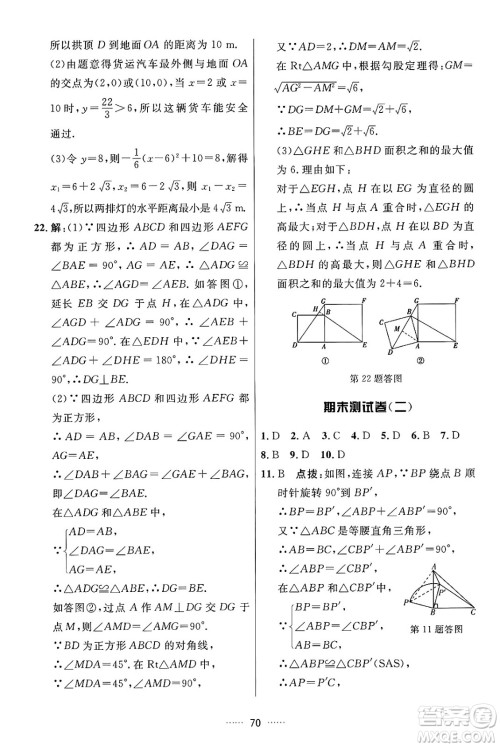 所以拱顶 D 到地面 OA 的距离为 10 m.
(2)由题意得货运汽车最外侧与地面 OA
的交点为(2,0)或(10,0),当 x=2 或 x=
10 时,y=22/3>6,所以这辆货车能安全
通过.
(3)令 y=8,则−1/6(x−6)²+10=8,解得
x₁=6+2√3,x₂=6−2√3,则 x₁−x₂=
4√3,所以两排灯的水平距离最小是 4√3 m.
22.解:(1)∵四边形 ABCD 和四边形 AEFG
都为正方形,∴AD=AB,∠DAG=
∠BAE=90°,AG=AE,∴△ADG≌
△ABE,∴∠AGD=∠AEB.如答图①,
延长 EB 交 DG 于点 H,在△ADG 中,
∠AGD+∠ADG=90°,∴∠AEB+
∠ADG=90°.在△EDH 中,∠AEB+
∠ADG+∠DHE=180°,∴∠DHE=
90°,∴DG⊥BE.
(2)∵四边形 ABCD 和四边形 AEFG
均为正方形,
∴AD=AB,∠DAB=∠GAE=90°,
AG=AE,
∴∠DAB+∠BAG=∠GAE+∠BAG,
∴∠DAG=∠BAE.
在△ADG 和△ABE 中,
AD=AB,
∵∠DAG=∠BAE,
AG=AE,
∴△ADG≌△ABE,∴DG=BE.
如答图②,过点 A 作 AM⊥DG 于
点 M,则∠AMD=∠AMG=90°.
∵BD 为正方形的对角线,
∴∠MDA=45°.在 Rt△AMD 中,
∵∠MDA=45°,∴∠MAD=45°,
又∵AD=2√3,∴DM=AM=√6.
在 Rt△AMG 中,根据勾股定理得,GM=
√AG²−AM²=√6,
∵DG=DM+GM=2√6,
∴BE=DG=2√6.
(3)△GHE 和△BHD 面积之和的最大值
为 6.理由如下:
对于△EGH,点 H 在以 EG 为直径的圆
上,∴当点 H 与点 A 重合时,△EGH 的
高最大;对于△BDH,点 H 在以 BD 为直
径的圆上,∴当点 H 与点 A 重合时,
△BDH 的高最大,则△GHE 和△BHD
面积之和的最大值为 2+4=6.
G F H C B D A E
①
G F C B H M D A E
②
第 22 题答图
期末测试卷(二)
1.D 2.A 3.C 4.D 5.D 6.D 7.D
8.B 9.D 10.D
11.B 点拨:如图,连接 AP,∵BP 绕点 B 顺
时针旋转 90°到 BP′,
∴BP=BP′,∠ABP+∠ABP′=90°.
又∵△ABC 是等腰直角三角形,
∴AB=BC,∠CBP′+∠ABP′=90°,
∴∠ABP=∠CBP′.
在△ABP 和△CBP′中,
BP=BP′,
∵∠ABP=∠CBP′,
AB=CB,
A P′ P B C
第 11 题答图
∴△ABP≌△CBP′(SAS),
∴AP=P′C.
70